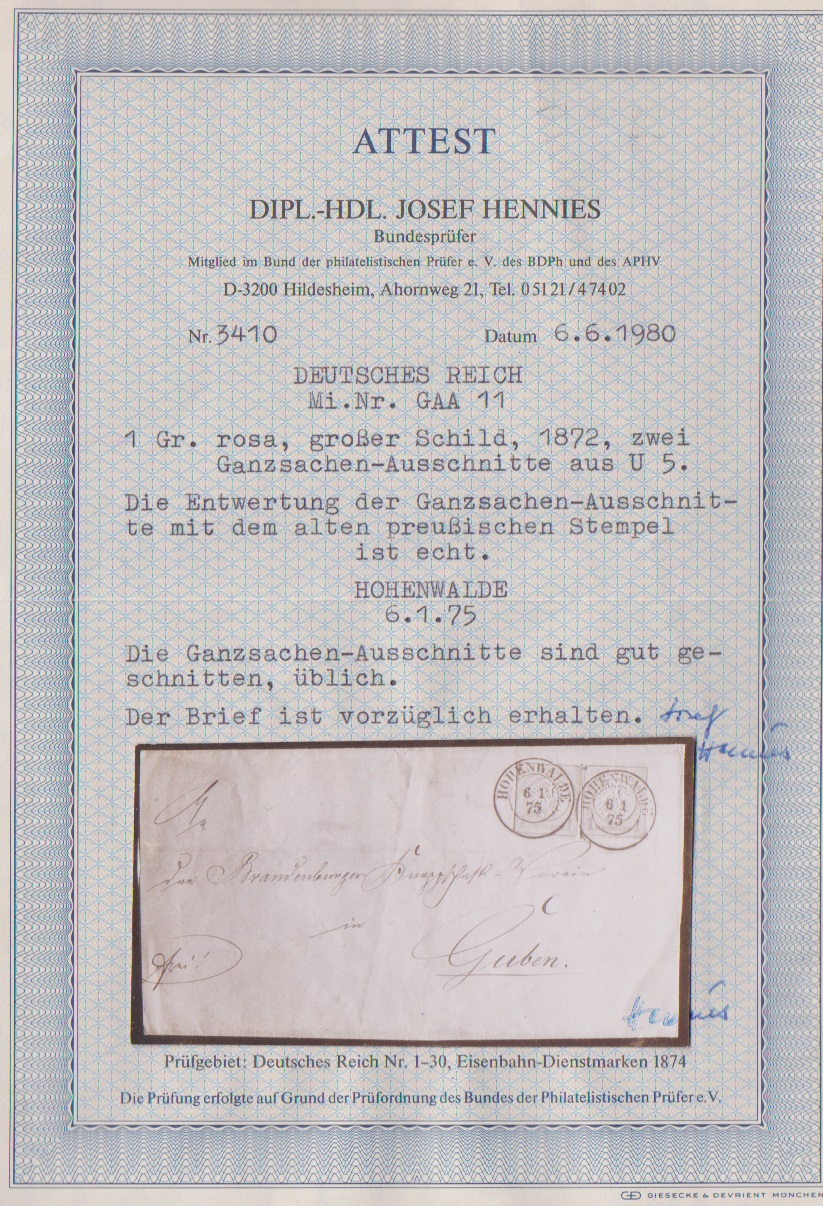 ATTEST
DIPL.-HDL. JOSEF HENNIES
Bundesprüfer
Mitglied im Bund der philatelistischen Prüfer e. V. des BDPh und des APHV
D-3200 Hildesheim, Ahornweg 21, Tel. 05121/47402
Nr. 3410 Datum 6.6.1980
DEUTSCHES REICH
Mi.Nr. GAA 11
1 Gr. rosa, großer Schild, 1872, zwei
Ganzsachen-Ausschnitte aus U 5.
Die Entwertung der Ganzsachen-Ausschnit-
te mit dem alten preußischen Stempel
ist echt.
HOHENWALDE
6.1.75
Die Ganzsachen-Ausschnitte sind gut ge-
schnitten, üblich.
Der Brief ist vorzüglich erhalten. Josef
Hennies
HOHENWALDE
6 1
75
HOHENWALDE
6 1
75
An
den Brandenburger Knappschafts-Verein
in
Guben.
frei!
Hennies
Prüfgebiet: Deutsches Reich Nr. 1-30, Eisenbahn-Dienstmarken 1874
Die Prüfung erfolgte auf Grund der Prüfordnung des Bundes der Philatelistischen Prüfer e.V.
GIESECKE & DEVRIENT MÜNCHEN